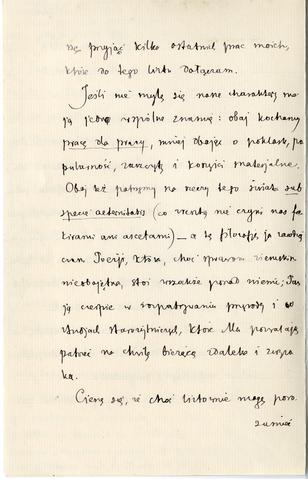 się przyjąć kilka ostatnich prac moich,
które do tego listu dołączam.
Jeśli nie mylę się nasze charaktery ma-
ją jedno wspólne znamię: obaj kochamy
pracę dla pracy, mniej dbając o poklask, po-
pularność, zaszczyty i korzyści materjalne.
Obaj też patrzymy na rzeczy tego świata sub
specie aeternitatis (co zresztą nie czyni nas fa-
kirami ani ascetami) – a tę filozofję, ja
czam Poezji, która, choć sprawom ziemskim
nieobojętna, stoi wszakże ponad niemi; Pan
ją czerpie w rozpatrywaniu przyrody i w
studjach starożytniczych, które Mu pozwalają
patrzeć na chwilę bieżącą zdaleka i z wyso-
ka.
Cieszę się, że choć listownie mogę poro-
zumieć